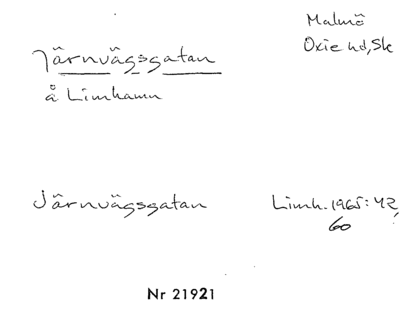 Malmö
Oxie hd, Sk
Järnvägsgatan
å Limhamn
Järnvägsgatan
Limh. 1965: 42,
60
Nr 21921